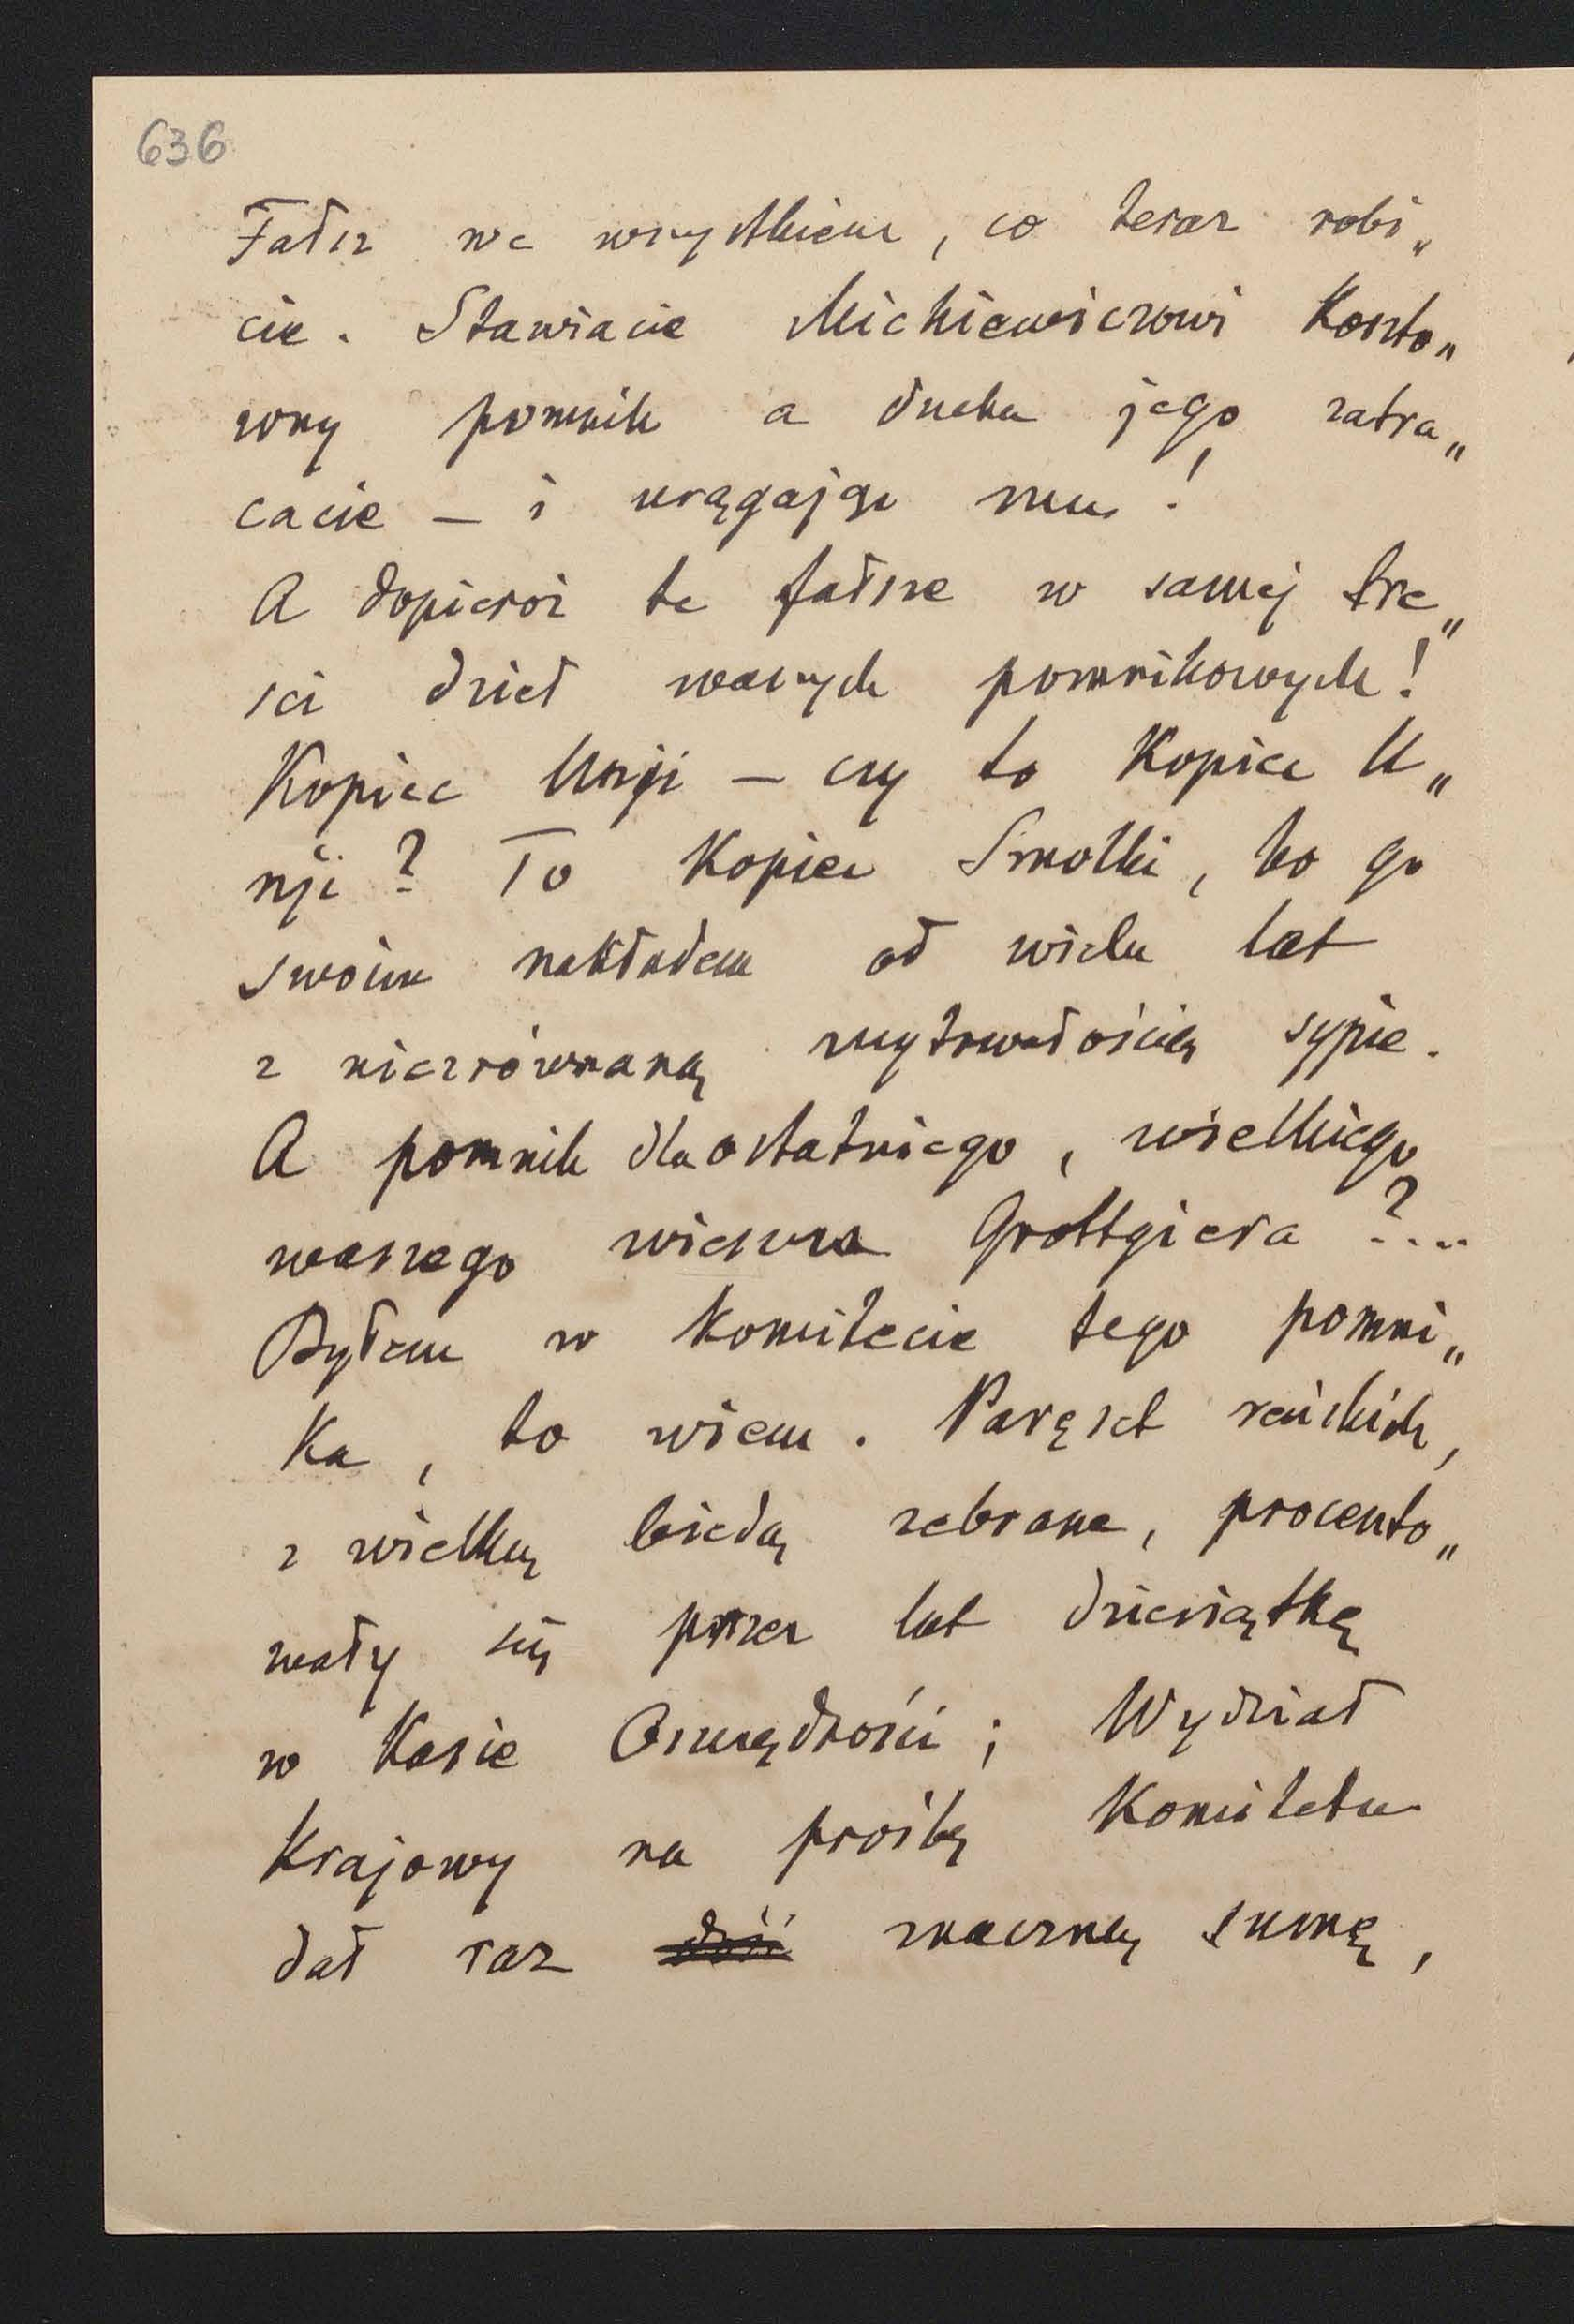 636
Fałsz we wszystkiem, co teraz robi„
cie. Stawiacie Mickiewiczowi koszto„
wny pomnik a ducha jego zatra„
cacie – i urągając mu!
A dopieroż te fałsze w samej tre„
ści dzieł waszych pomnikowych!
Kopiec Unji – czy to Kopiec U„
nji? To Kopiec Smolki, bo go
swoim nakładem od wielu lat
z niezrównaną wytrwałością sypie.
A pomnik dla ostatniego, wielkiego
waszego wieszcza Grottgiera?...
Byłem w Komitecie tego pomni„
ka, to wiem. Paręset reńskich,
z wielką biedą zebrane, procento„
wały się przez lat dziesiątkę
w Kasie Oszczędności; Wydział
Krajowy na prośbę Komitetu
dał raz dziś znaczną sumę,